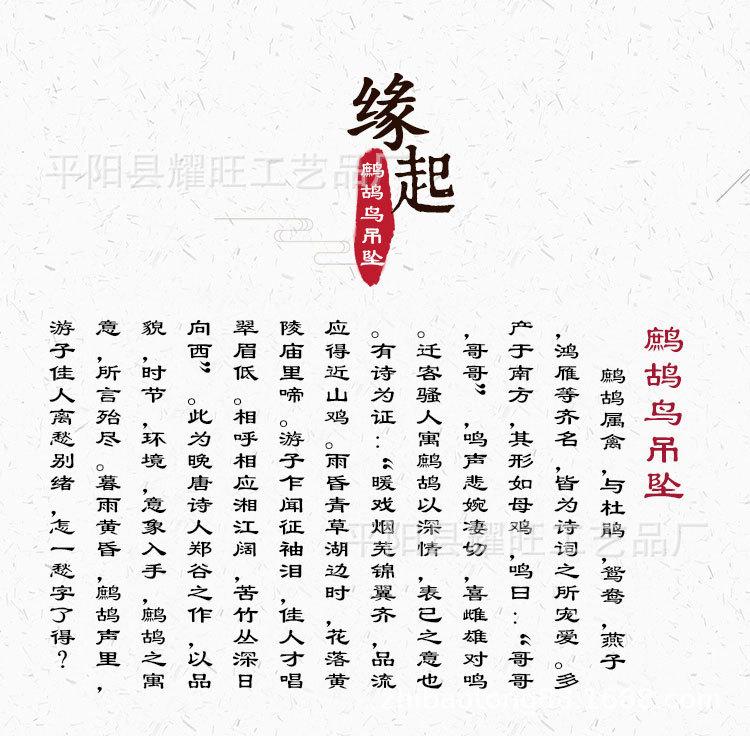 缘起
鹧鸪鸟吊坠
平阳县耀旺工艺品厂
鹧鸪鸟吊坠
鹧鸪属禽,与杜鹃,鸳鸯,燕子
,鸿雁等齐名,皆为诗词之所宠爱。多
产于南方,其形如母鸡,鸣曰:“哥哥
,哥哥”,鸣声悲婉凄切,喜雌雄对鸣
。迁客骚人寓鹧鸪以深情,表己之意也
。有诗为证:“暖戏烟芜锦翼齐,品流
应得近山鸡。雨昏青草湖边时,花落黄
陵庙里啼。游子乍闻征袖泪,佳人才唱
翠眉低。相呼相应湘江阔,苦竹丛深日
向西”。此为晚唐诗人郑谷之作,以品
貌,时节,环境,意象入手,鹧鸪之寓
意,所言殆尽。暮雨黄昏,鹧鸪声里,
游子佳人离愁别绪,怎一愁字了得?
平阳县耀旺工艺品厂